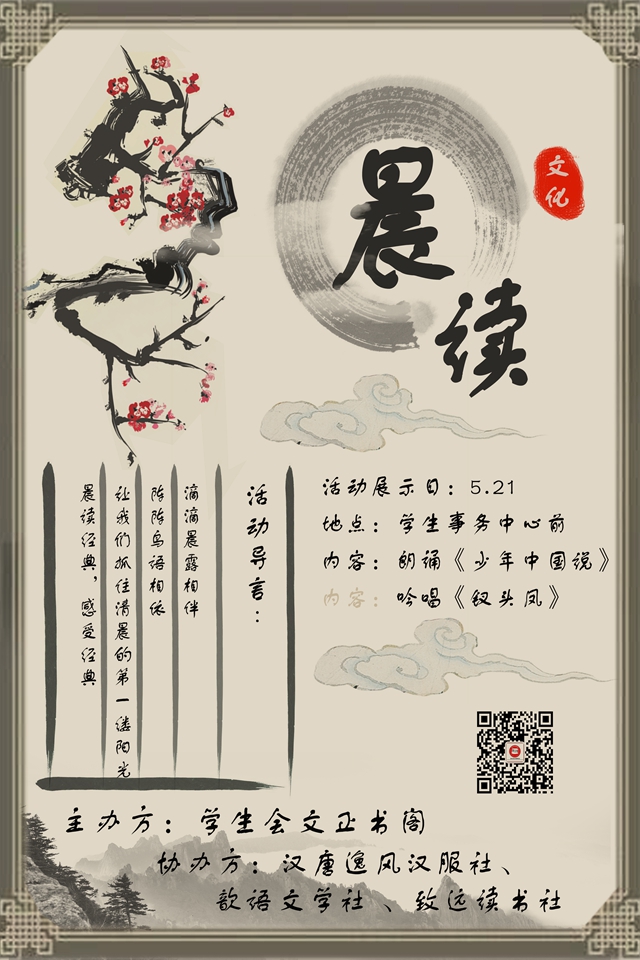 晨读
文化
活动导言：
滴滴晨露相伴
阵阵鸟语相依
让我们抓住清晨的第一缕阳光
晨读经典，感受经典
活动展示日：5.21
地点：学生事务中心前
内容：朗诵《少年中国说》
内容：吟唱《钗头凤》
主办方：学生会文正书阁
协办方：汉唐逸风汉服社、
歆语文学社、致远读书社